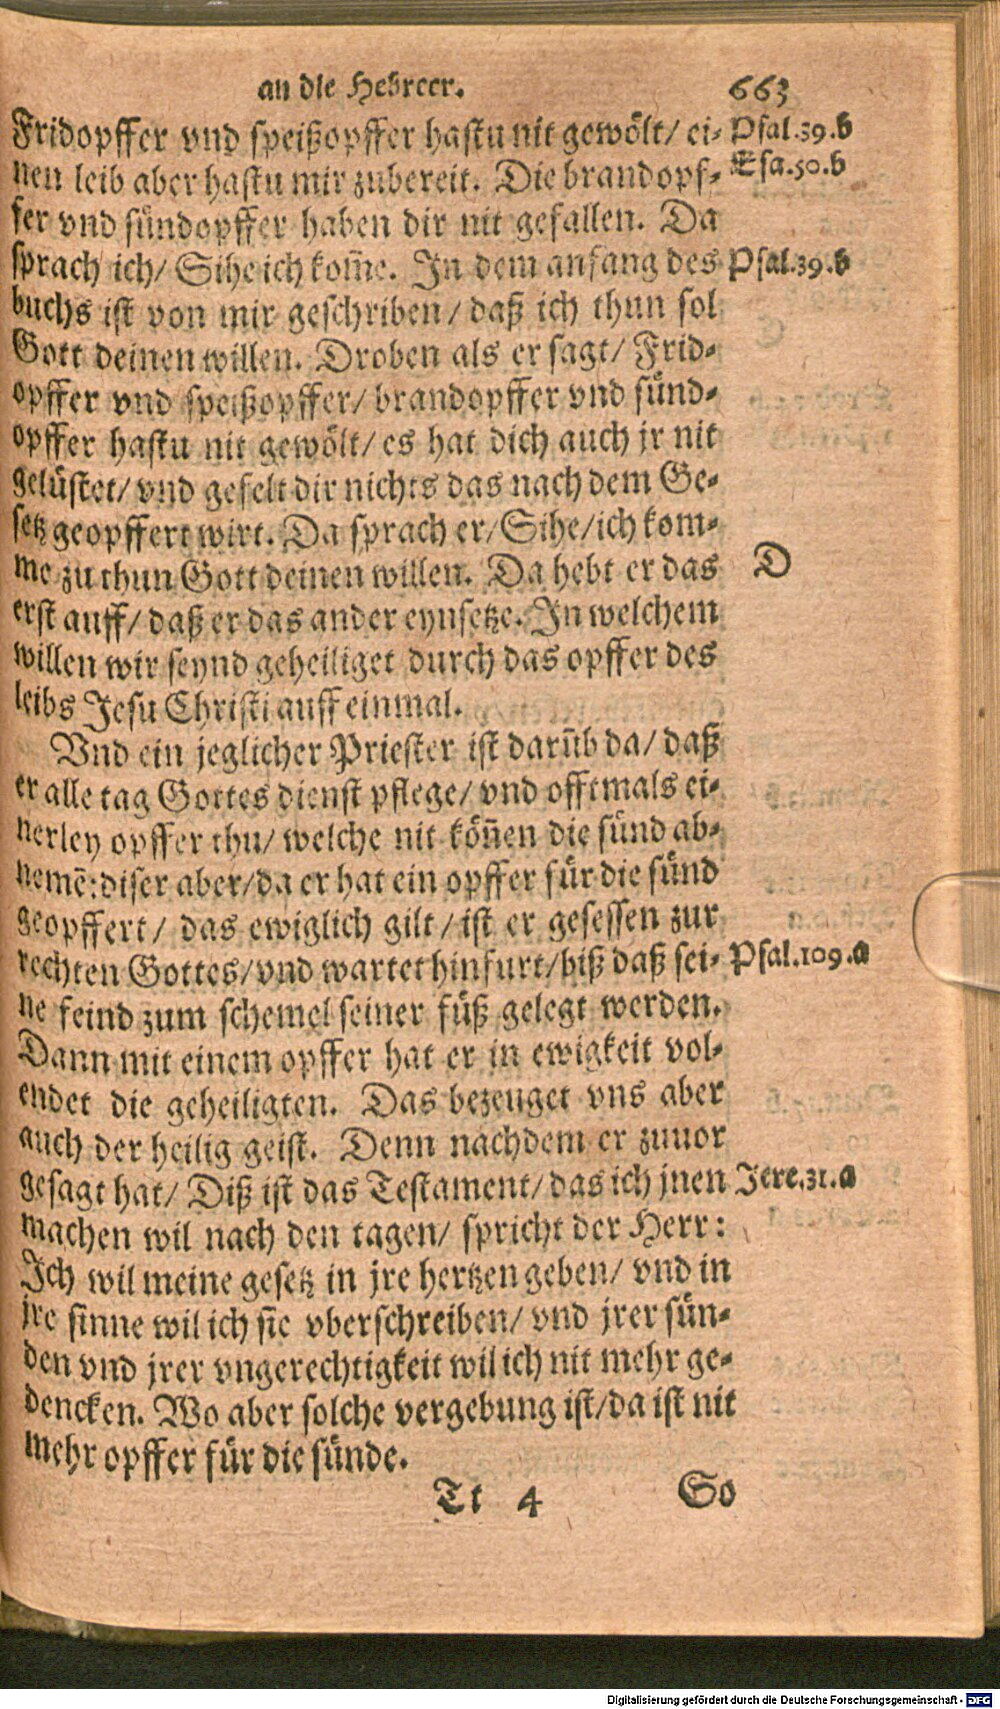 an die Hebreer. 663
Fridopffer vnd speißopffer hastu nit gewölt/ ei- Psal.39.b
nen leib aber hastu mir zubereit. Die brandopf- Esa.50.b
fer vnd sündopffer haben dir nit gefallen. Da
sprach ich/ Sihe ich kom̃e. In dem anfang des Psal.39.b
buchs ist von mir geschriben/ daß ich thun sol
Gott deinen willen. Droben als er sagt/ Frid-
opffer vnd speißopffer/ brandopffer vnd sünd-
opffer hastu nit gewölt/ es hat dich auch jr nit
gelüstet/ vnd gefelt dir nichts das nach dem Ge-
setz geopffert wirt. Da sprach er/ Sihe/ ich kom-
me zu thun Gott deinen willen. Da hebt er das D
erst auff/ daß er das ander eynsetze. In welchem
willen wir seynd geheiliget durch das opffer des
leibs Jesu Christi auff einmal.
Vnd ein jeglicher Priester ist darũb da/ daß
er alle tag Gottes dienst pflege/ vnd offtmals ei-
nerley opffer thu/ welche nit köñen die sünd ab-
nemẽ: diser aber/ da er hat ein opffer für die sünd
geopffert/ das ewiglich gilt/ ist er gesessen zur
rechten Gottes/ vnd wartet hinfurt/ biß daß sei- Psal.109.a
ne feind zum schemel seiner füß gelegt werden.
Dann mit einem opffer hat er in ewigkeit vol-
endet die geheiligten. Das bezeuget vns aber
auch der heilig geist. Denn nachdem er zuuor
gesagt hat/ Diß ist das Testament/ das ich jnen Jere.31.a
machen wil nach den tagen/ spricht der Herr:
Ich wil meine gesetz in jre hertzen geben/ vnd in
jre sinne wil ich sie vberschreiben/ vnd jrer sün-
den vnd jrer vngerechtigkeit wil ich nit mehr ge-
dencken. Wo aber solche vergebung ist/ da ist nit
mehr opffer für die sünde.
Tt 4 So
Digitalisierung gefördert durch die Deutsche Forschungsgemeinschaft - DFG